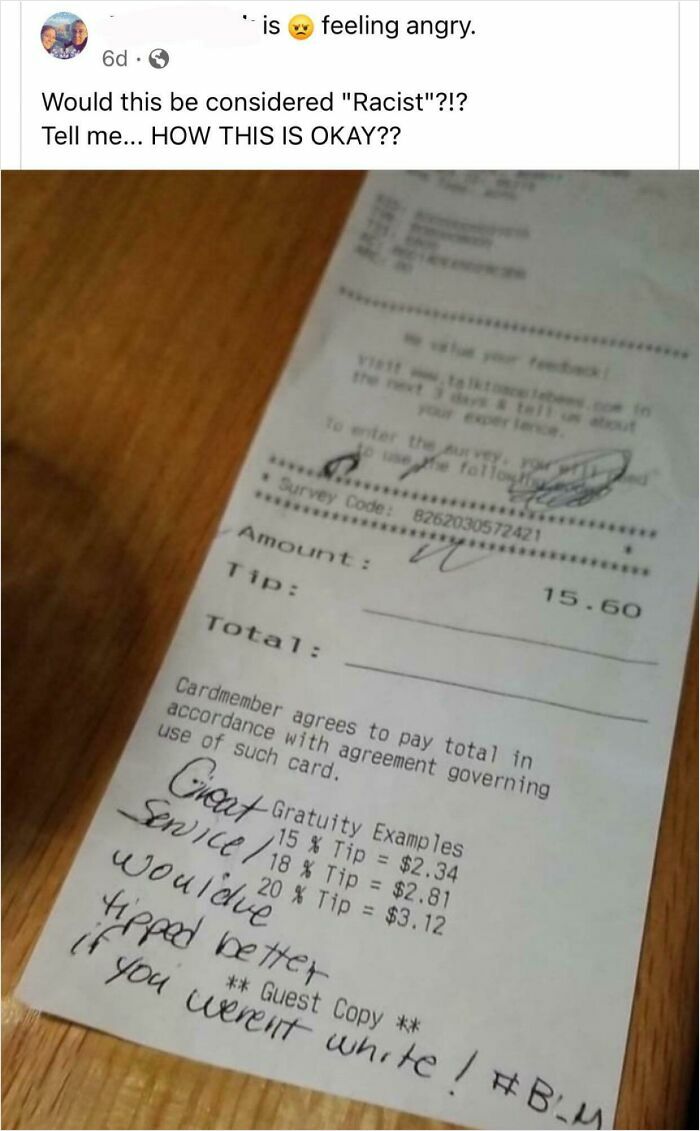 is 😠 feeling angry.
6d ·
Would this be considered "Racist"?!?
Tell me... HOW THIS IS OKAY??
We value your feedback!
Visit www.talktoapplebees.com in
the next 3 days & tell us about
your experience.
To enter the survey, you will need
to use the following
* Survey Code: 8262030572421 *
Amount: 15.60
Tip:
Total:
Cardmember agrees to pay total in
accordance with agreement governing
use of such card.
Gratuity Examples
15 % Tip = $2.34
18 % Tip = $2.81
20 % Tip = $3.12
Great
Service!
would've
tipped better
** Guest Copy **
if you weren't white! #BLM